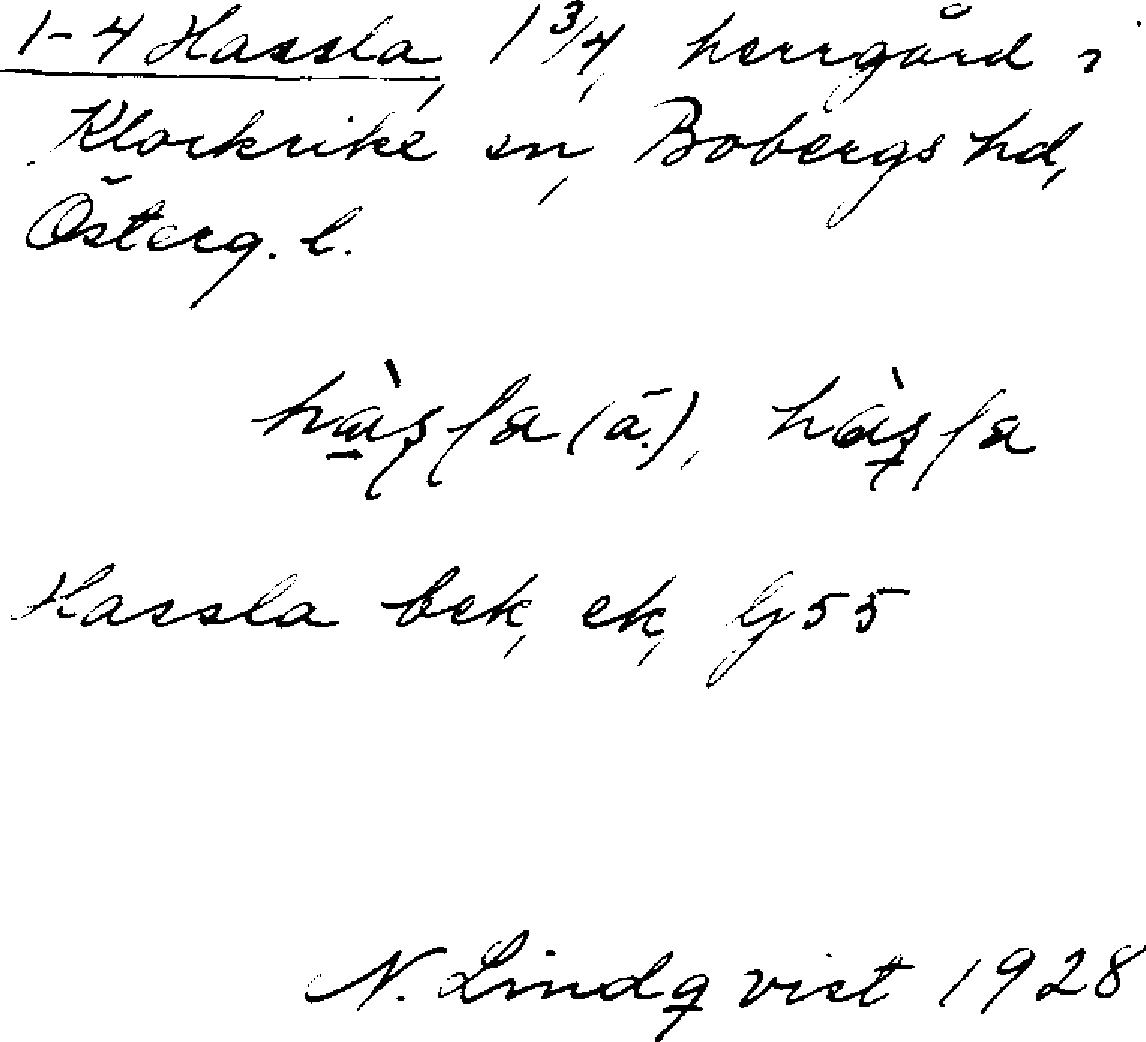 1-4 Hassla, 1 3/4, herrgård i
Klockrike sn, Bobergs hd,
Österg. l.
hàsla (ä.), hàsla
Hassla bek, ek, Gj 55
N. Lindqvist 1928